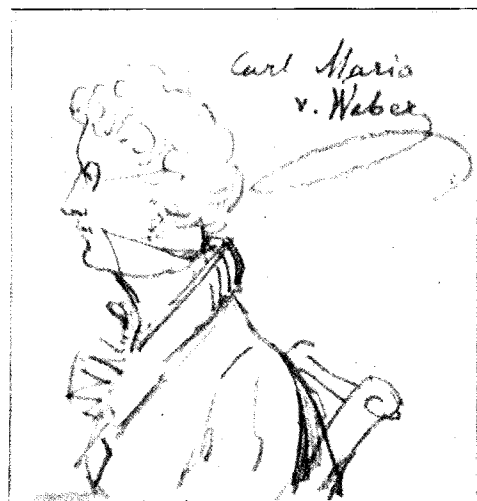 Carl Maria
v. Weber